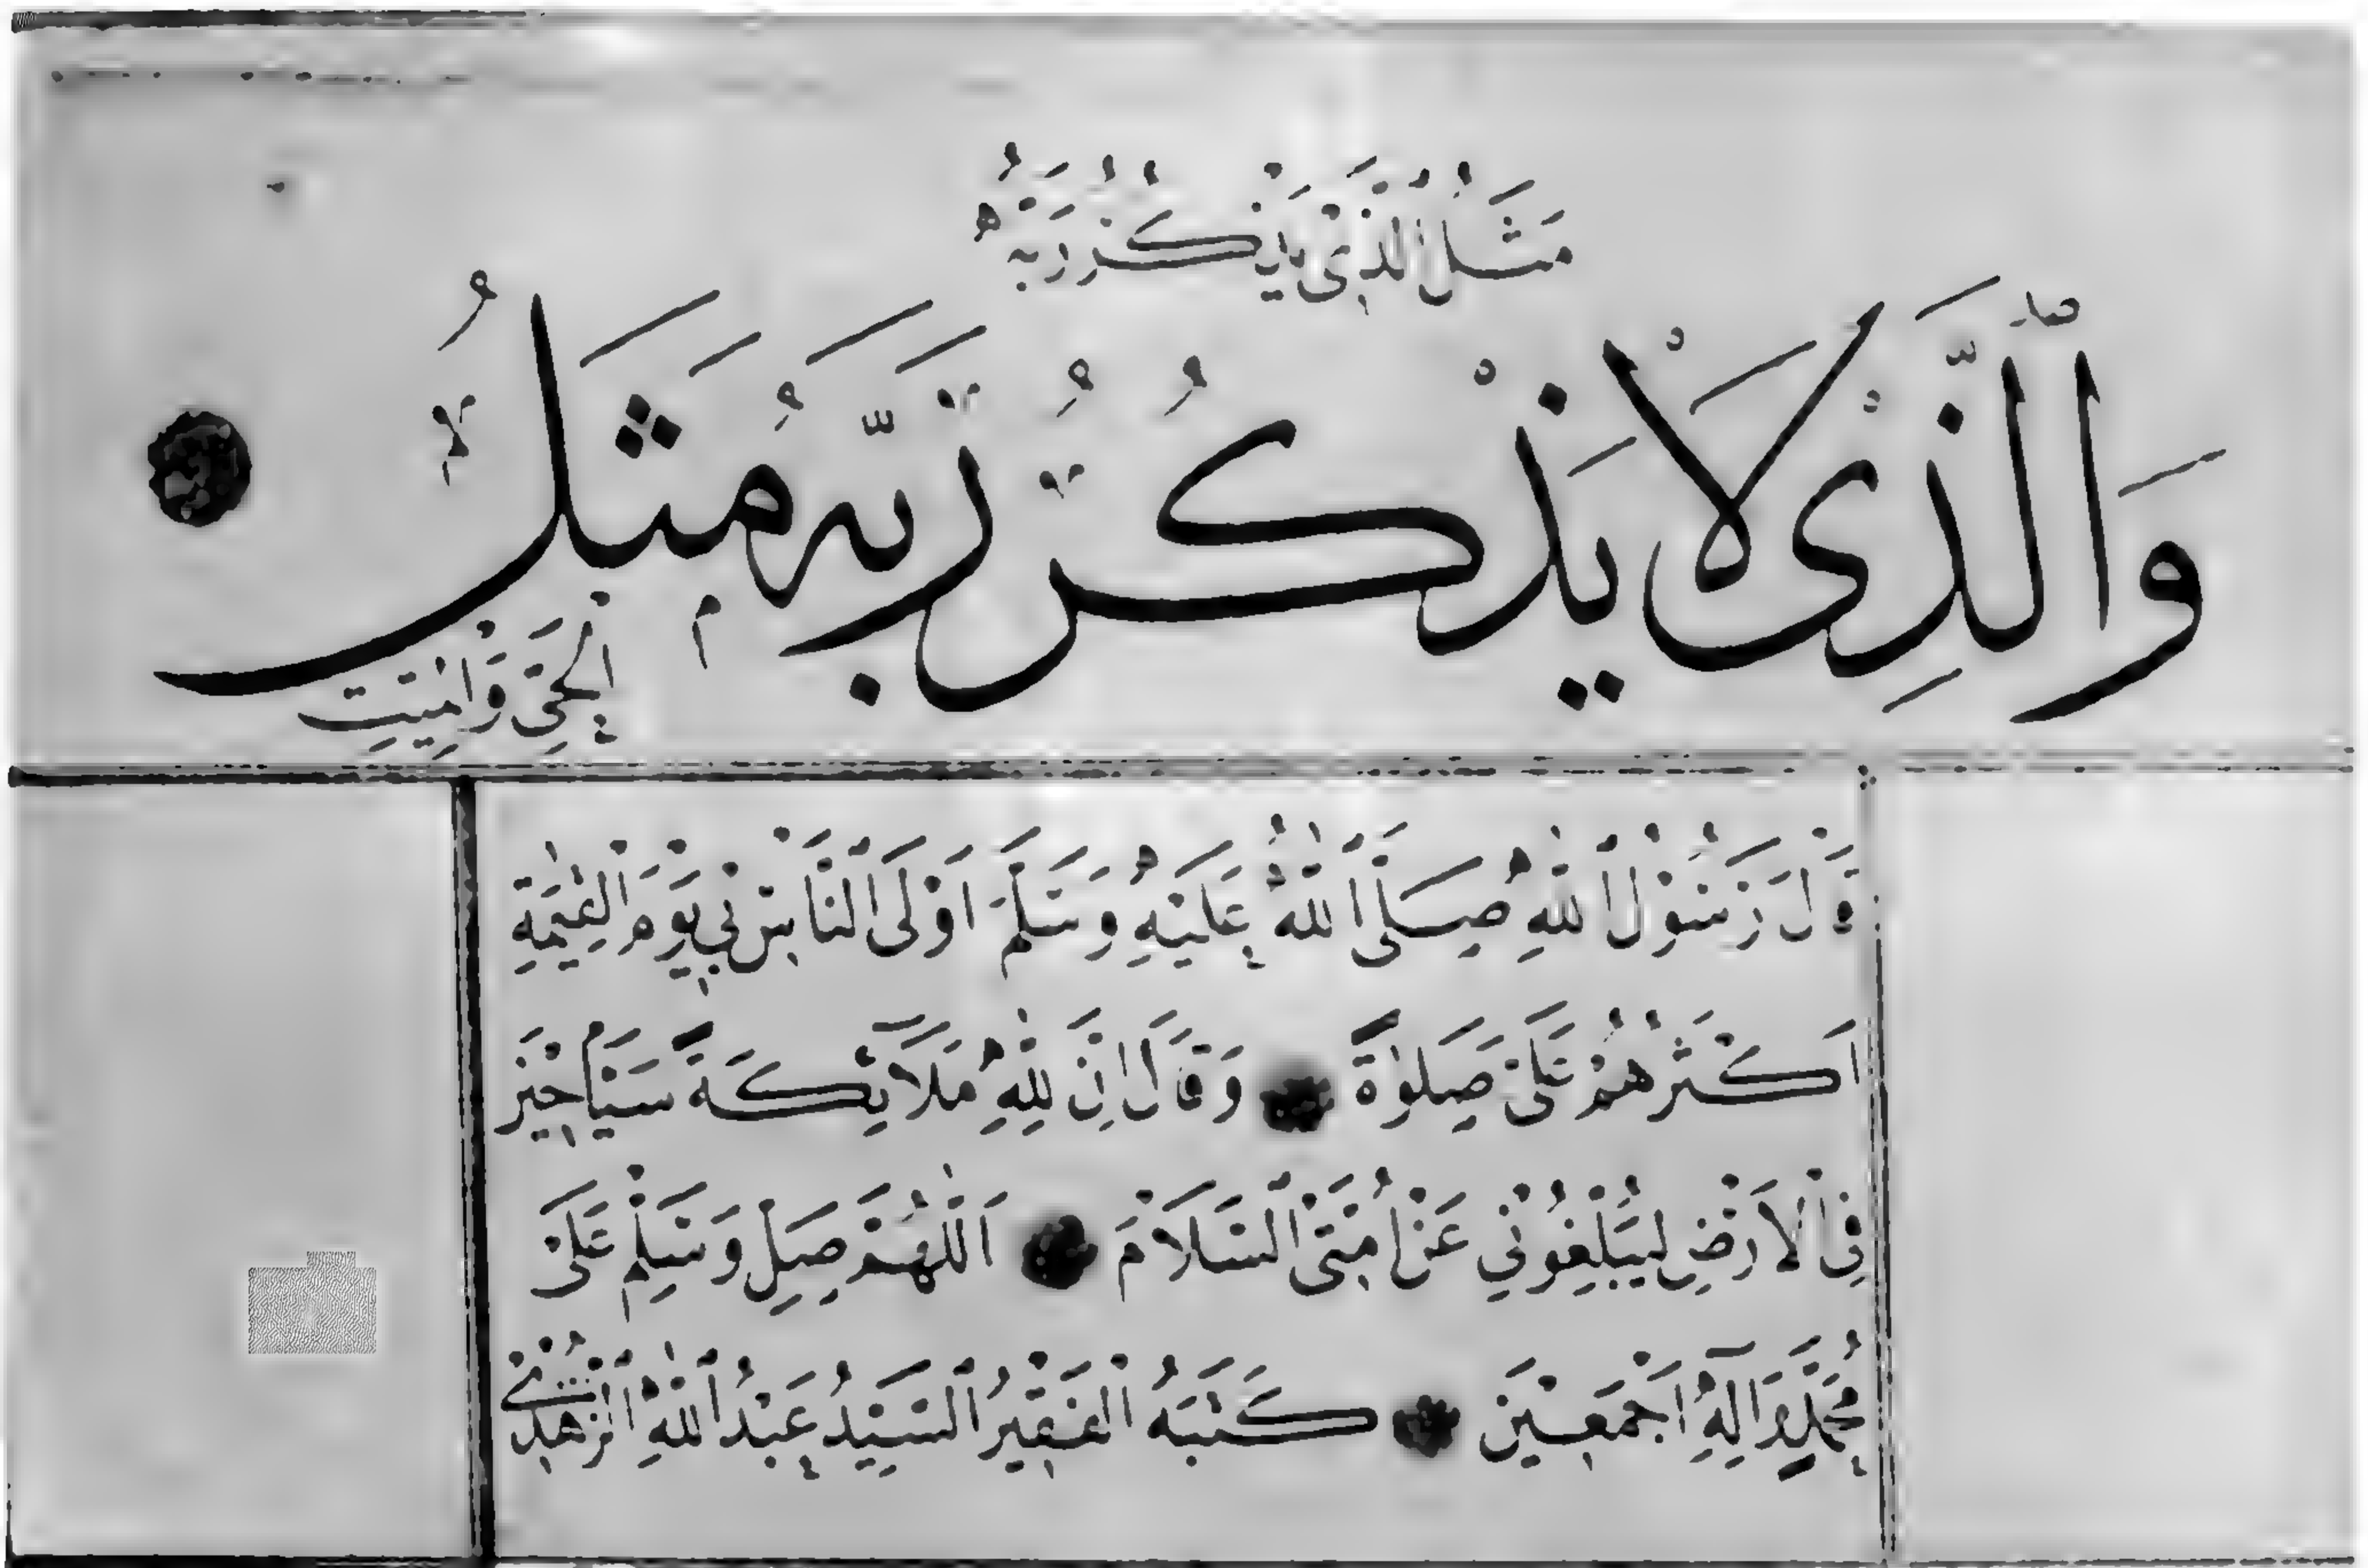 مَثَلُ الَّذِى يَذْكُرُ رَبَّهُ
وَالَّذِى لَا يَذْكُرُ رَبَّهُ مَثَلُ
الْحَىِّ وَالْمَيِّتِ
قَالَ رَسُولُ اللّٰهِ صَلَّى اللّٰهُ عَلَيْهِ وَسَلَّمَ اَوْلَى النَّاسِ بِى يَوْمَ الْقِيٰمَةِ
اَكْثَرُهُمْ عَلَىَّ صَلٰوةً وَقَالَ اِنَّ لِلّٰهِ مَلَآئِكَةً سَيَّاحِينَ
فِى الْاَرْضِ يُبَلِّغُونِى عَنْ اُمَّتِى السَّلَامَ اَللّٰهُمَّ صَلِّ وَسَلِّمْ عَلَى
مُحَمَّدٍ وَاٰلِهِ اَجْمَعِينَ كَتَبَهُ الْفَقِيرُ السَّيِّدُ عَبْدُ اللّٰهِ الزُّهْدِى